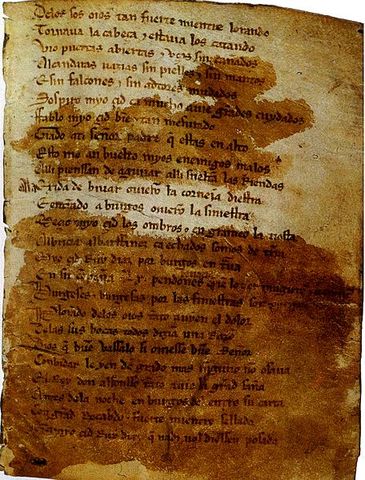 Delos sos oios tan fuerte mientre lorando
Tornaua la cabeça e estaua los catando
Vio puertas abiertas e vços sin cañados
Alcandaras uazias sin pielles e sin mantos
E sin falcones e sin adtores mudados
Sospiro myo çid ca mucho auie grãdes cuydados
Fablo myo çid bien e tan mesurado
Grado ati señor padre q̃ estas en alto
Esto me an buelto myos enemigos malos
Alli pienssan de aguijar alli sueltan las Riendas
Ala exida de biuar ouierõ la corneia diestra
E entrãdo a burgos ouierõ la siniestra
Meçio myo çid los ombros e en grameo la tiesta
Albricia albarffanez ca echados somos de tierra
Myo çid Ruy diaz por burgos entraua
En su conpaña .lx. pendones
Burgeses e burgesas por las finiestras son
Plorando delos oios tãto auyen el dolor
Delas sus bocas todos dizian una Razõ
Dios q̃ buẽ vassalo si ouiesse buẽ Señor
Conbidar le yen de grado mas ninguno nõ osaua
El Rey don alfonsso tãto auie la grãd saña
Antes dela noche en burgos del entro su carta
Con grãd Recabdo e fuerte mientre sellada
çid Ruy diaz q̃ nadi nol diessen posada